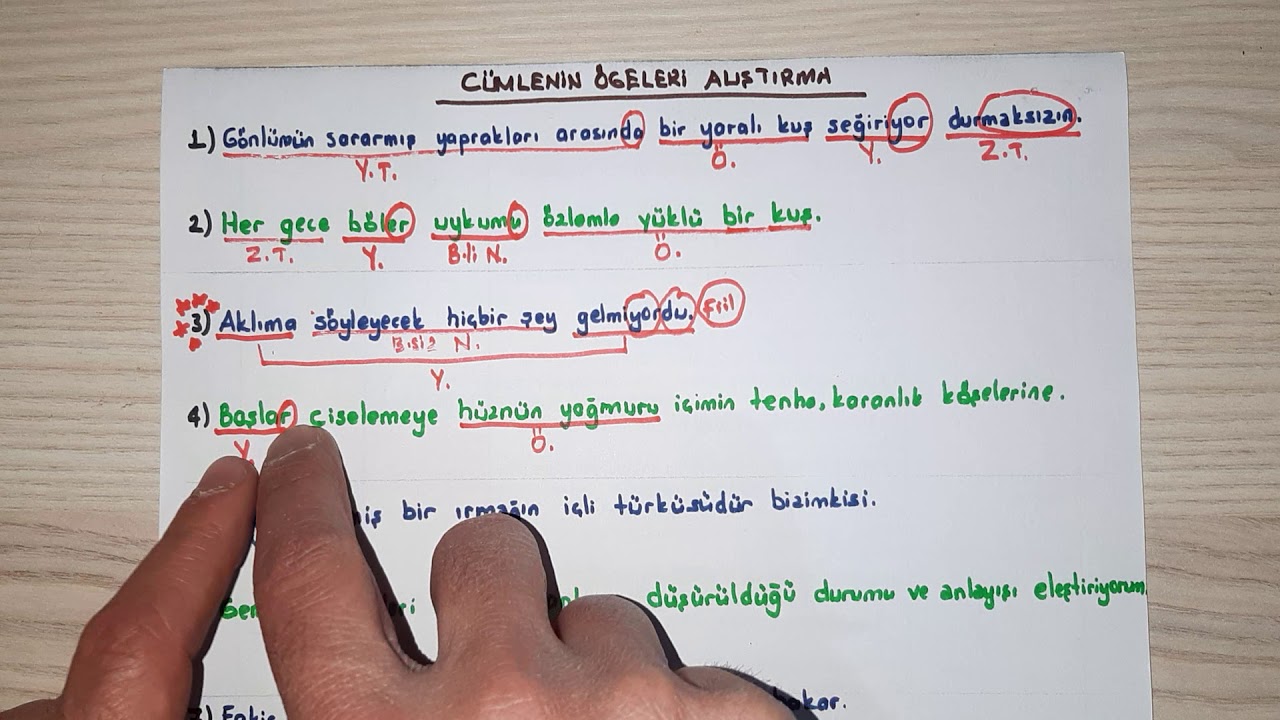 CÜMLENİN ÖGELERİ ALIŞTIRMA
1) Gönlümün sararmış yaprakları arasında bir yaralı kuş seğiriyor durmaksızın.
Y.T. Ö. Y. Z.T.
2) Her gece böler uykumu özlemle yüklü bir kuş.
Z.T. Y. B.li N. Ö.
3) Aklıma söyleyecek hiçbir şey gelmiyordu. Fiil
B.siz N.
Y.
4) Başlar çiselemeye hüznün yağmuru içimin tenha, karanlık köşelerine.
Y. Ö.
bir ırmağın içli türküsüdür bizimkisi.
düşürüldüğü durumu ve anlayışı eleştiriyorum.